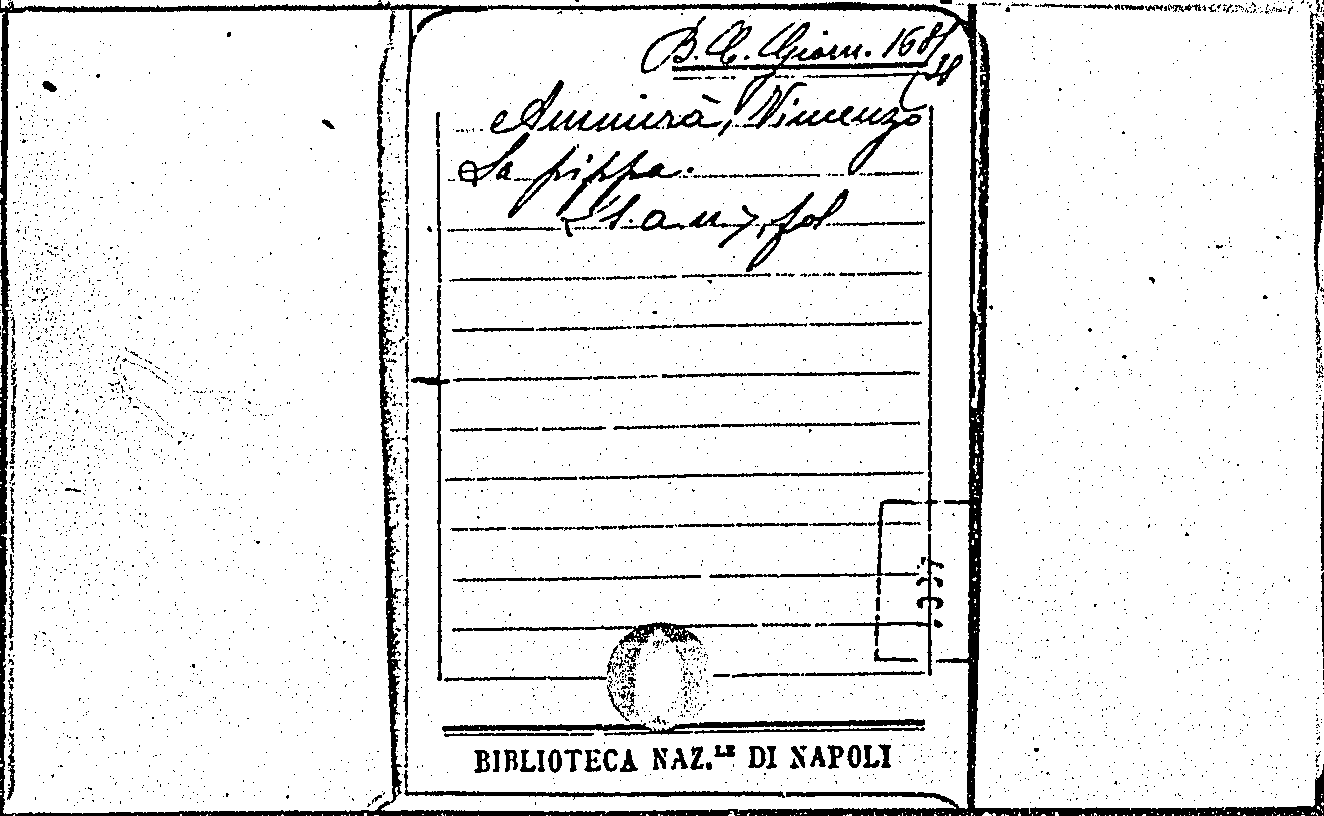 B. C. Giorn. 168/
Ammirà, Vincenzo
La pippa.
S.l.a.n.], fol
BIBLIOTECA NAZ.LE DI NAPOLI